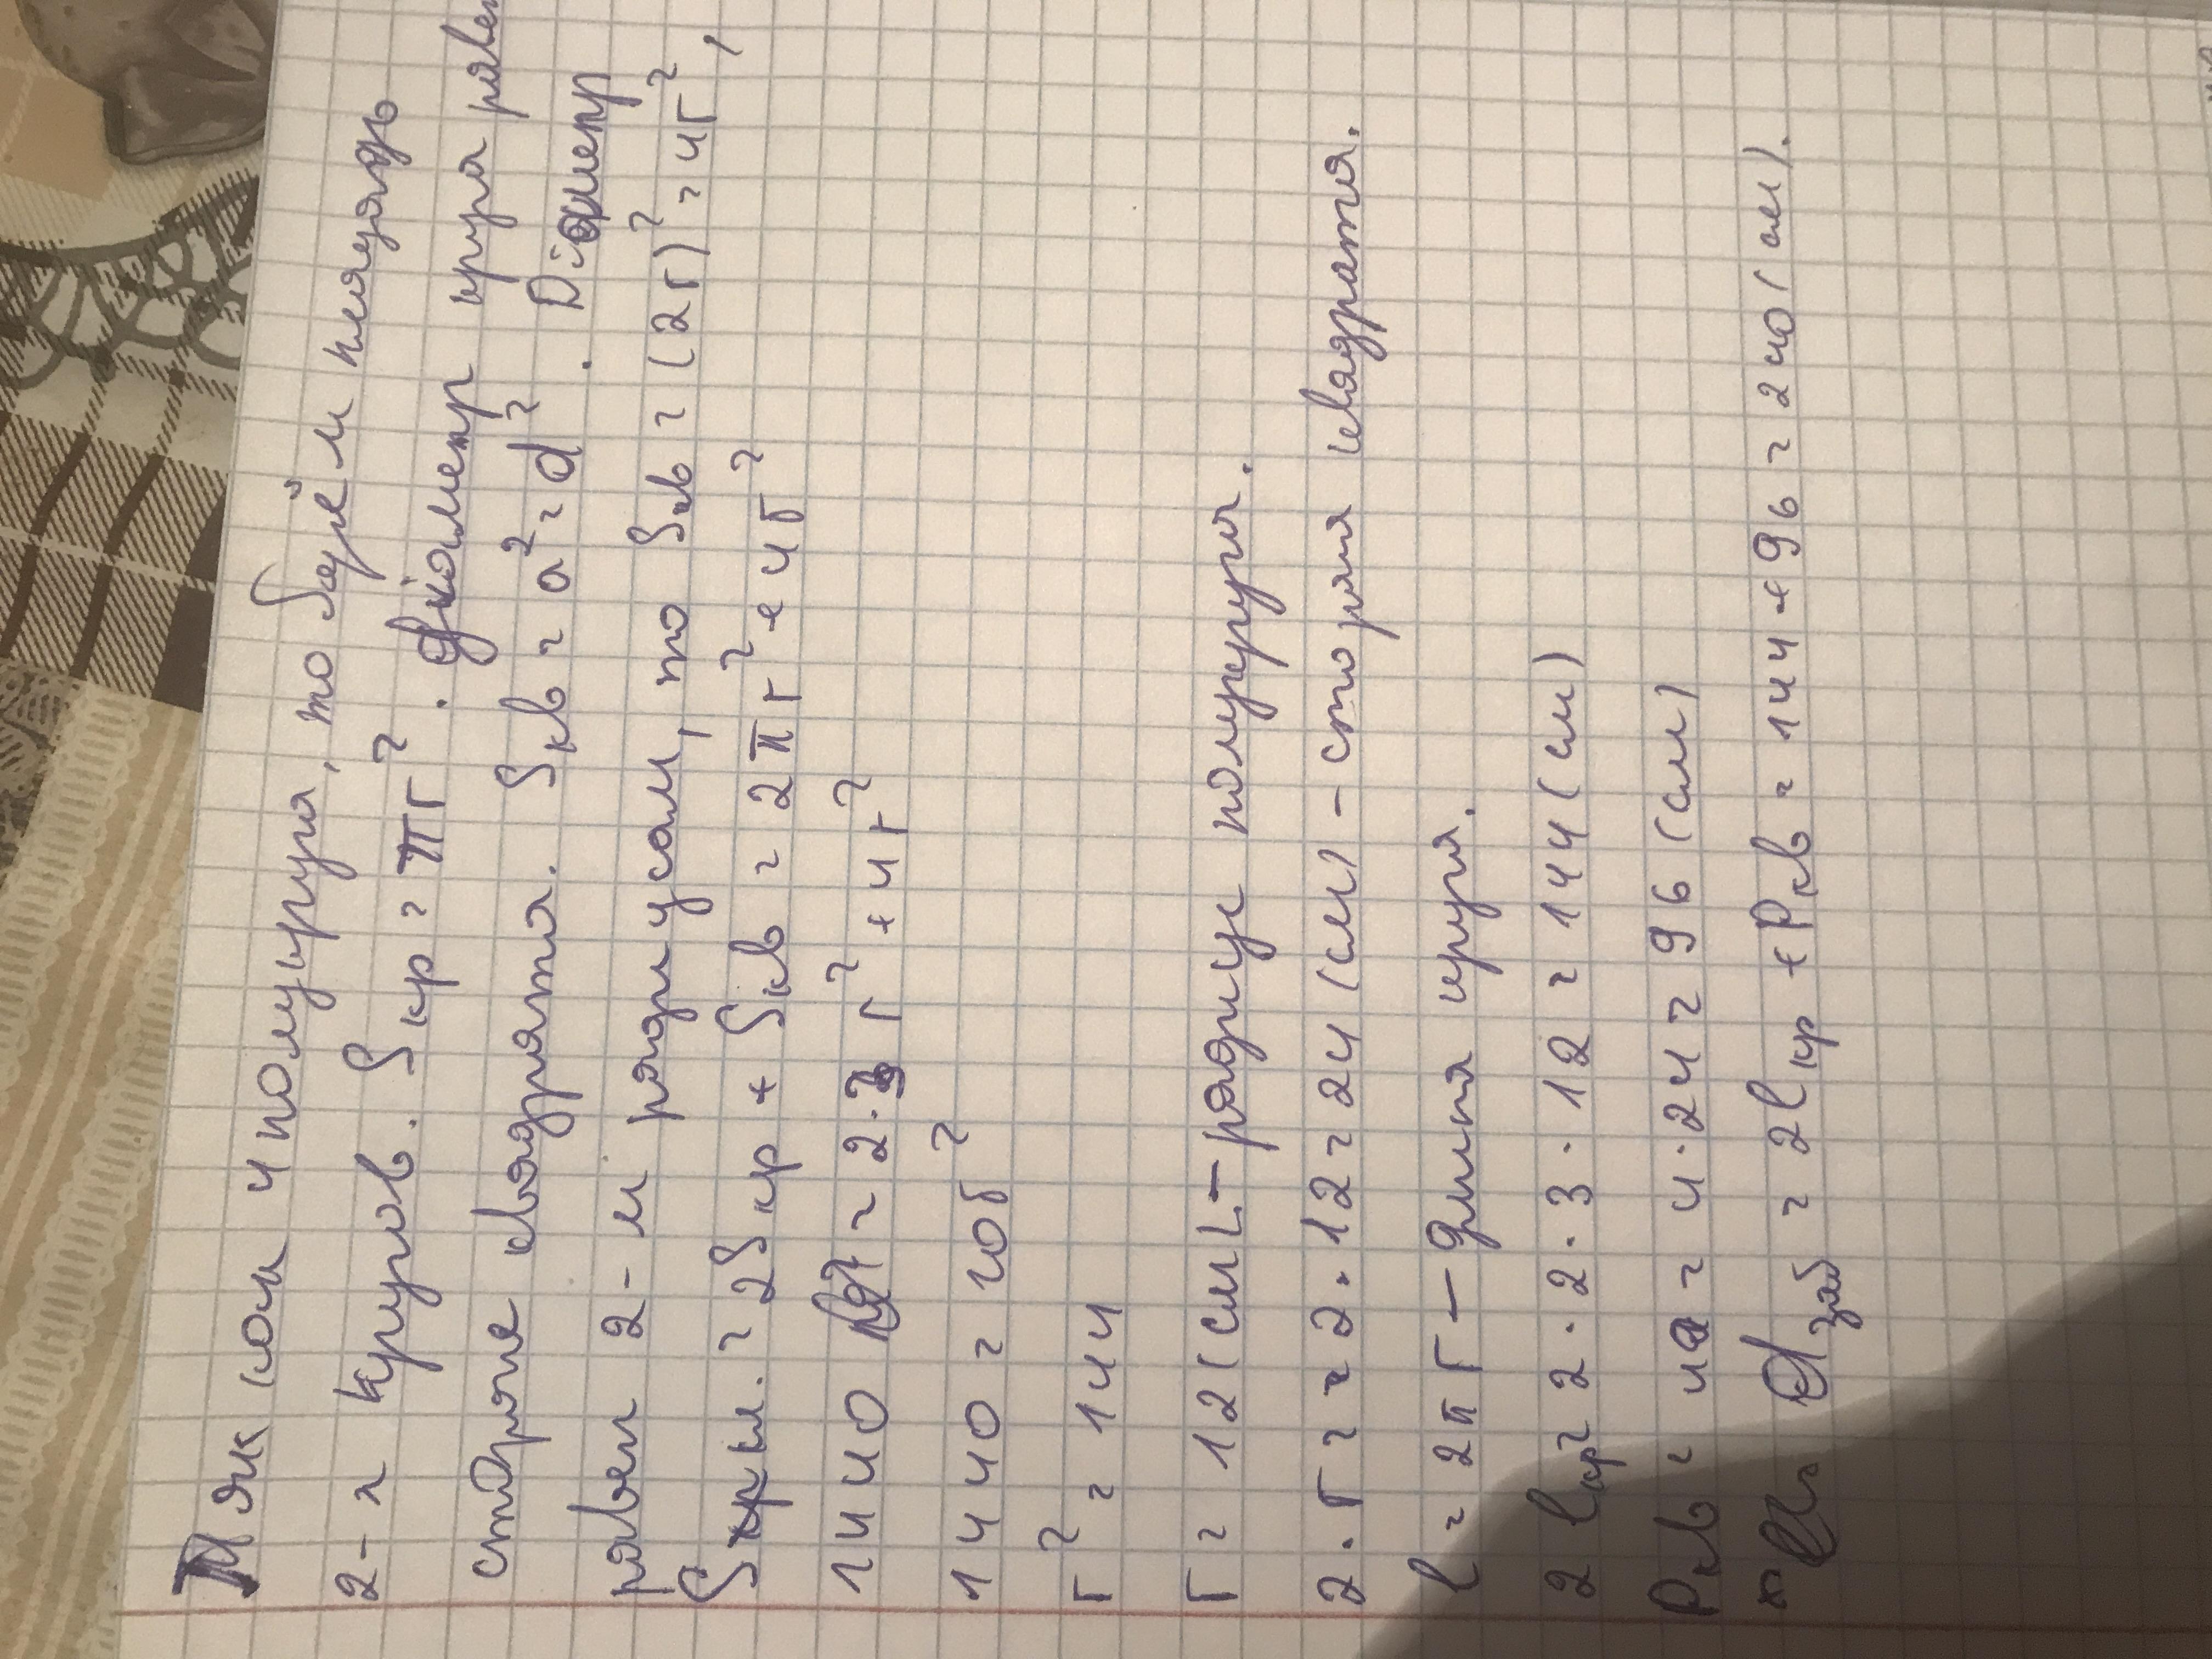 Так как 4 полукруга, то берём площадь
2-х кругов. Sкр = πr². Диаметр круга равен
стороне квадрата. Sкв = a² = d². Диаметр
равен 2-м радиусам, то Sкв = (2r)² = 4r²,
S = 2Sкр + Sкв = 2πr² + 4r²
1440 = 2·3 r² + 4r²
1440 = 10r²
r² = 144
r = 12 (см) - радиус полукруга.
2·r = 2·12 = 24 (см) - сторона квадрата.
l = 2πr - длина круга.
2lкр = 2·2·3·12 = 144 (см)
Pкв = 4a = 4·24 = 96 (см)
lзаб = 2lкр + Pкв = 144 + 96 = 240 (см).